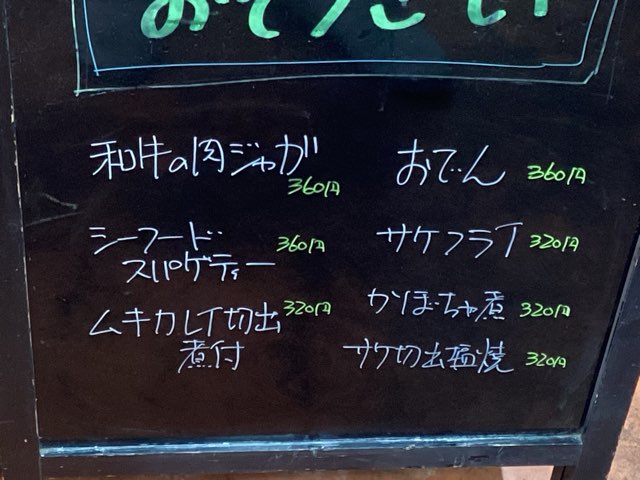 おそうざい
和牛の肉ジャガ
360円
シーフード 360円
スパゲティー
ムキカレイ切出 320円
煮付
おでん 360円
サケフライ 320円
かぼちゃ煮 320円
サケ切出塩焼 320円